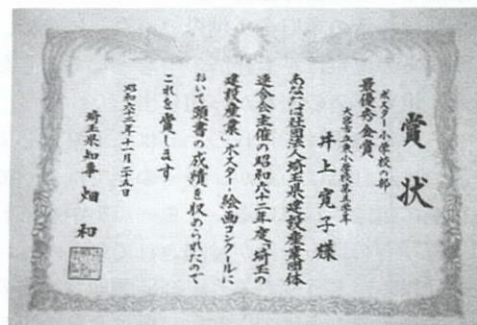 賞状
ポスター小学校の部
最優秀金賞
大宮市立東小学校第五学年
井上寛子様
あなたは社団法人埼玉県建設産業団体
連合会主催の昭和六十二年度「埼玉の
建設産業」ポスター・絵画コンクールに
おいて頭書の成績を収められたので
これを賞します
昭和六十二年十一月二十五日
埼玉県知事 畑 和